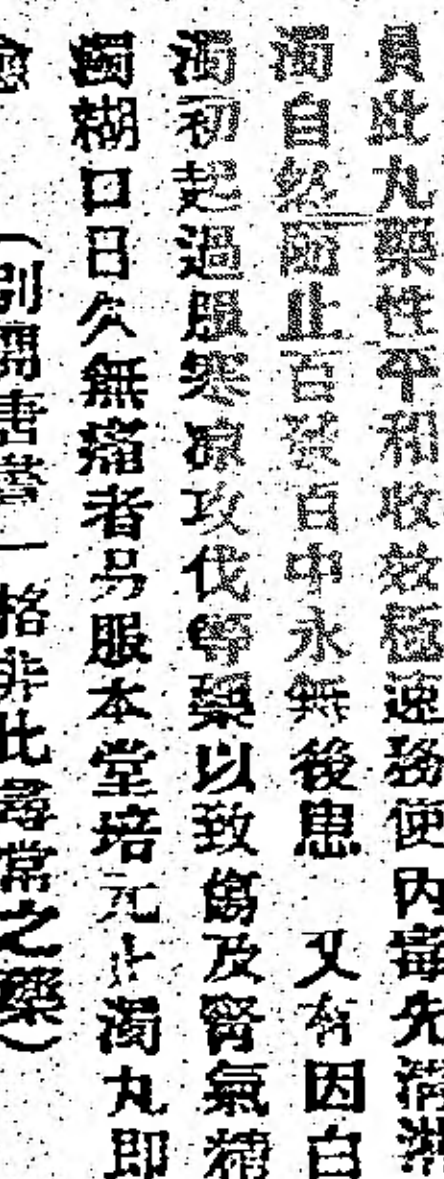 員此丸藥性平和收效極速務使內毒先清淋
濁自然隨止百發百中永無後患 又有因白
濁初起過服寒凉攻伐等藥以致傷及腎氣精
濁糊口日久無痛者另服本堂培元止濁丸即
愈 (別開蹊徑一格非比尋常之藥)